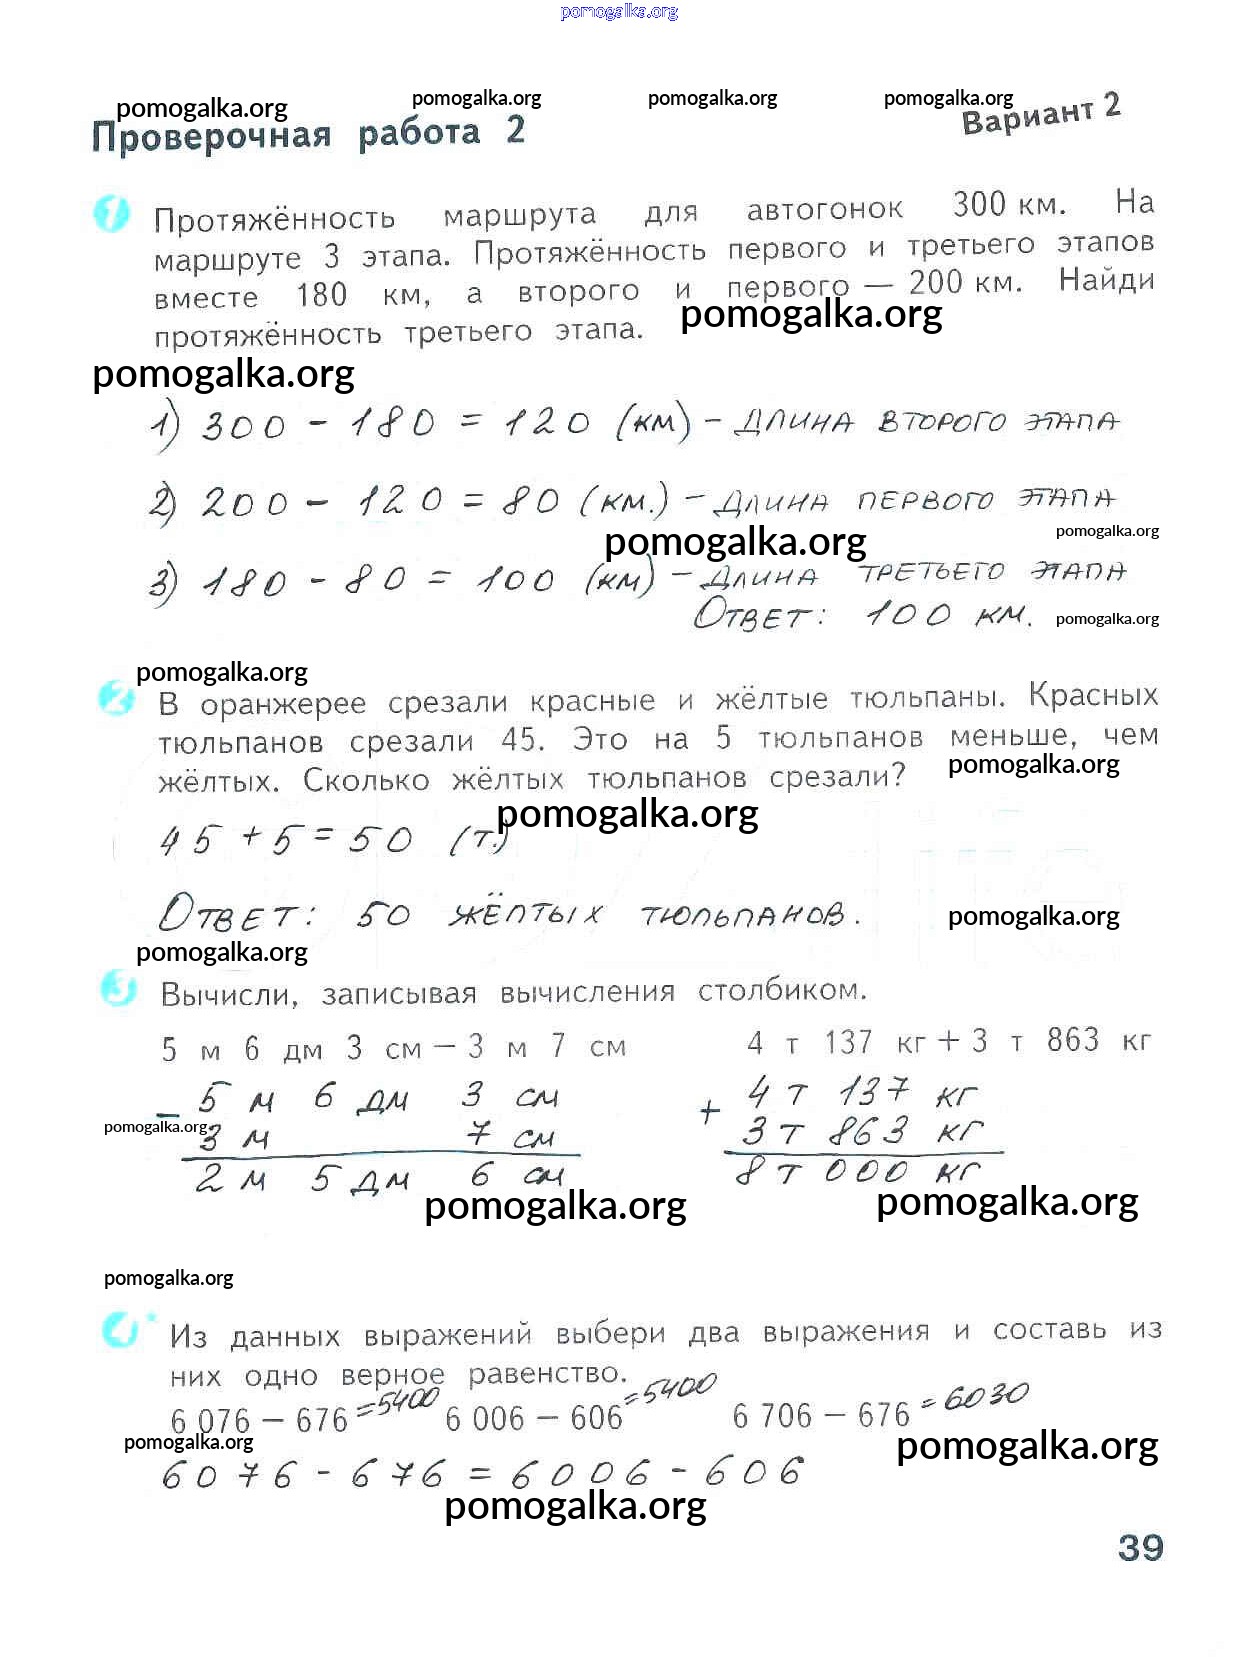 pomogalka.org
pomogalka.org pomogalka.org pomogalka.org pomogalka.org
Проверочная работа 2 Вариант 2
1 Протяжённость маршрута для автогонок 300 км. На
маршруте 3 этапа. Протяжённость первого и третьего этапов
вместе 180 км, а второго и первого — 200 км. Найди
pomogalka.org
протяжённость третьего этапа.
pomogalka.org
1) 300 - 180 = 120 (км) - длина второго этапа
2) 200 - 120 = 80 (км.) - длина первого этапа
pomogalka.org pomogalka.org
3) 180 - 80 = 100 (км) - длина третьего этапа
Ответ: 100 км. pomogalka.org
pomogalka.org
2 В оранжерее срезали красные и жёлтые тюльпаны. Красных
тюльпанов срезали 45. Это на 5 тюльпанов меньше, чем
жёлтых. Сколько жёлтых тюльпанов срезали? pomogalka.org
pomogalka.org
45 + 5 = 50 (т.)
Ответ: 50 жёлтых тюльпанов. pomogalka.org
pomogalka.org
3 Вычисли, записывая вычисления столбиком.
5 м 6 дм 3 см — 3 м 7 см 4 т 137 кг + 3 т 863 кг
- 5 м 6 дм 3 см + 4 т 137 кг
pomogalka.org
3 м 7 см 3 т 863 кг
2 м 5 дм 6 см 8 т 000 кг
pomogalka.org pomogalka.org
pomogalka.org
4* Из данных выражений выбери два выражения и составь из
них одно верное равенство.
6 076 — 676 = 5400 6 006 — 606 = 5400 6 706 — 676 = 6030
pomogalka.org pomogalka.org
6076 - 676 = 6006 - 606
pomogalka.org
39